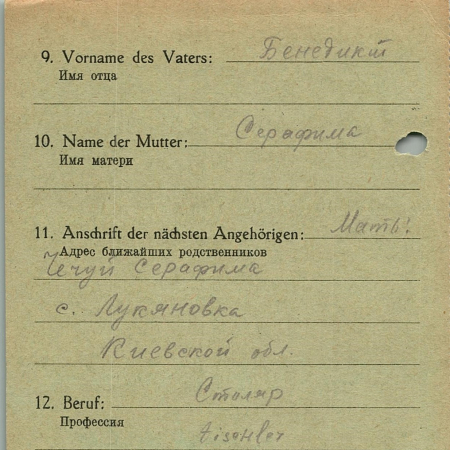 9. Vorname des Vaters: Бенедикт
Имя отца
10. Name der Mutter: Серафима
Имя матери
11. Anschrift der nächsten Angehörigen: Мать:
Адрес ближайших родственников
Чечуй Серафима
с. Лукяновка
Киевской обл.
12. Beruf: Столяр
Профессия
tischler